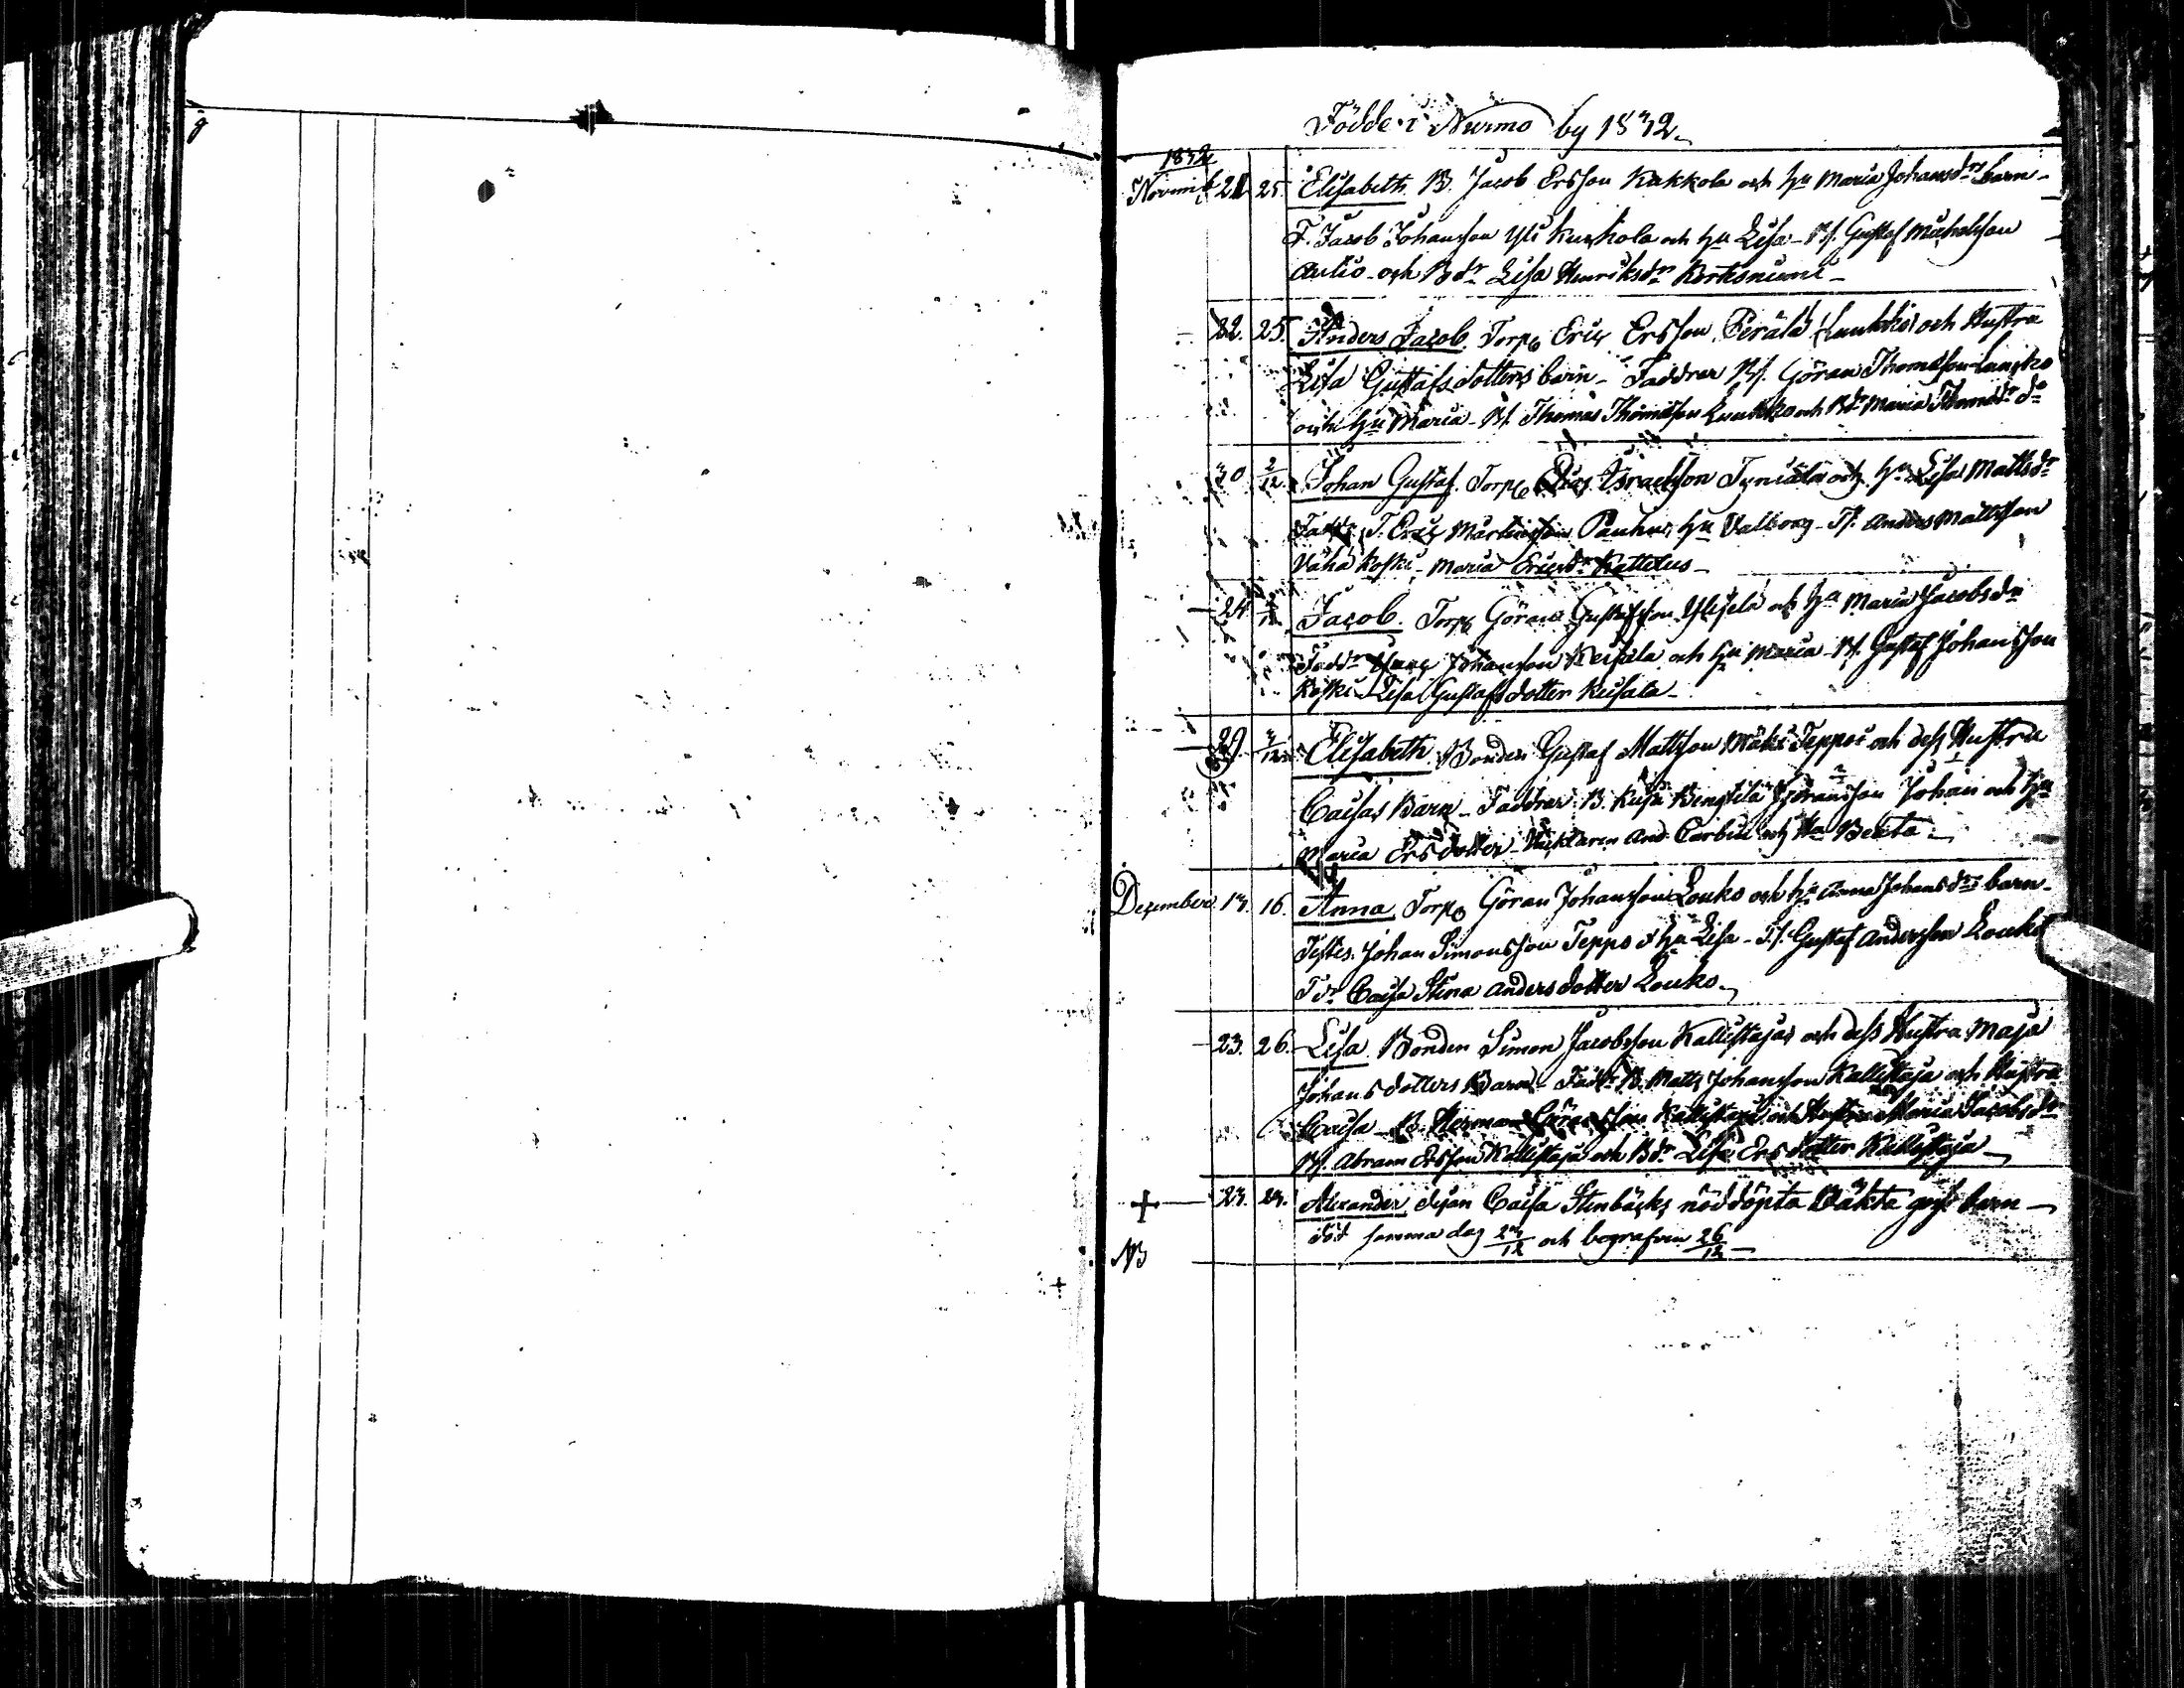 Födde i Nurmo by 1832.
1832
Novemb. 21 25. Elisabeth. B. Jacob Ersson Kakkola och hu Maria Johansdrs barn -
F. Jacob Johansson Yli Kuckola och hu Lisa - Bs. Gustaf Michelsson
Autio och Bdr Lisa Henriksdr Kortesniemi -
22. 25. Anders Jacob. Torp. Eric Ersson Perälä Luukko och Hustru
Lisa Gustafsdotters barn - Faddrar Bs. Göran Thomasson Luukko
och hu Maria - Bs. Thomas Thomasson Luukko och Bdr Maria Thomasdr do
30 2/12 Johan Gustaf. Torp. Israelsson och hu Lisa Mattsdr
Fadd. T. Eric Mårtensson Pauhu, hu Valborg - Ts. Anders Mattsson
Vähä Koski - Maria Ericsdr Kattelus -
24 Jacob. Torp. Göran Gustafsson Ylijelä och hu Maria Jacobsdr
Faddr Johansson Keisala och hu Maria - Bs. Gustaf Johansson
Koski - Lisa Gustafsdotter Keisala -
29. 3/12 Elisabeth. Bonden Gustaf Mattsson Mäki Teppos och dess Hustru
Caisas Barn - Faddrar B. Bengtila Göransson Johan och hu
Maria Ersdotter - And. Corbin och Hu Beata -
December 13. 16. Anna. Torp. Göran Johansson Louko och hu Anna Johansdrs barn -
Testes. Johan Simonsson Teppo & hu Lisa - Ts. Gustaf Andersson Louko
Tdr Caisa Stina Andersdotter Louko -
23. 26. Lisa. Bonden Simon Jacobsson Kallistajas och dess Hustru Maja
Johansdotters Barn - Faddr B. Matts Johansson Kallistaja och Hustru
Caisa - B. Herman Göransson Kallistaja och Hustru Maria Jacobsdr
Bs. Abram Ersson Kallistaja och Bdr Lisa Ersdotter Kallistaja -
+ 23. 23. Alexander. Pigan Caisa Stenbäcks nöddöpta oäkta barn -
NB död samma dag 23/12 och begrafven 26/12 -